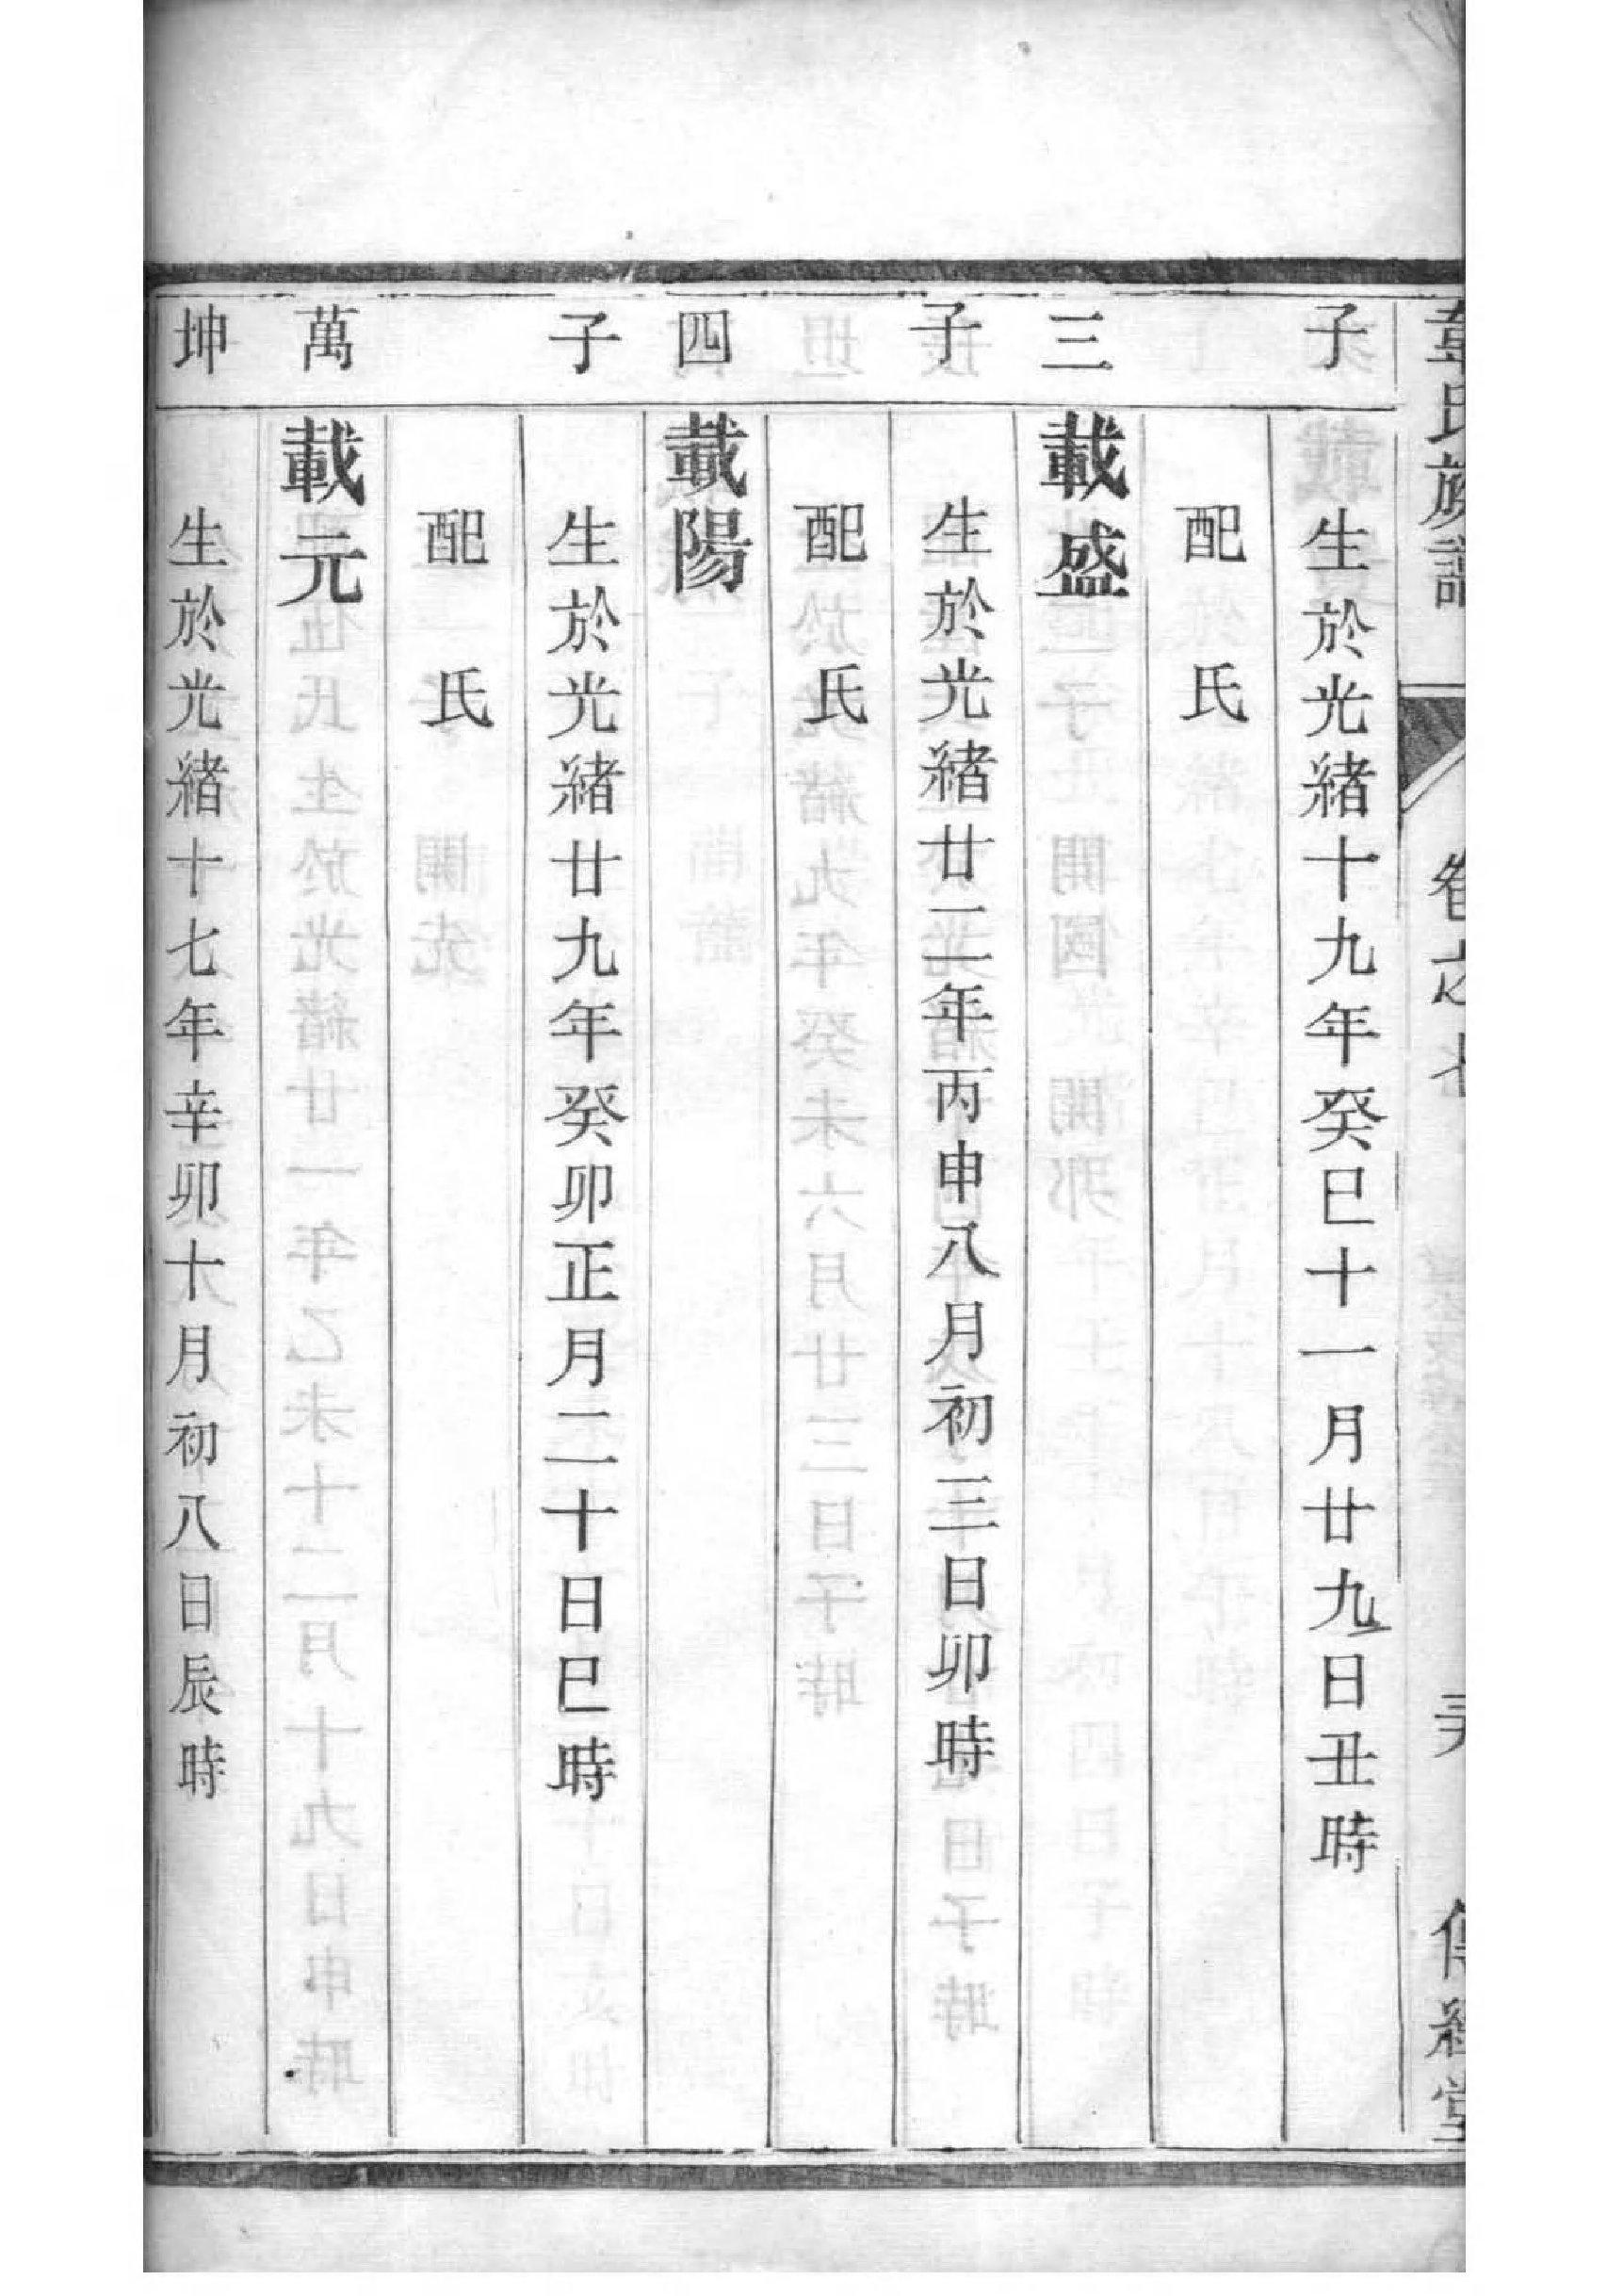 氏族譜 卷之七 傳經堂
子 生於光緒十九年癸巳十一月廿九日丑時
配 氏
三 載盛
子 生於光緒廿二年丙申八月初三日卯時
配 氏
四 載陽
子 生於光緒廿九年癸卯正月二十日巳時
配 氏
萬 載元
坤 生於光緒十七年辛卯十月初八日辰時